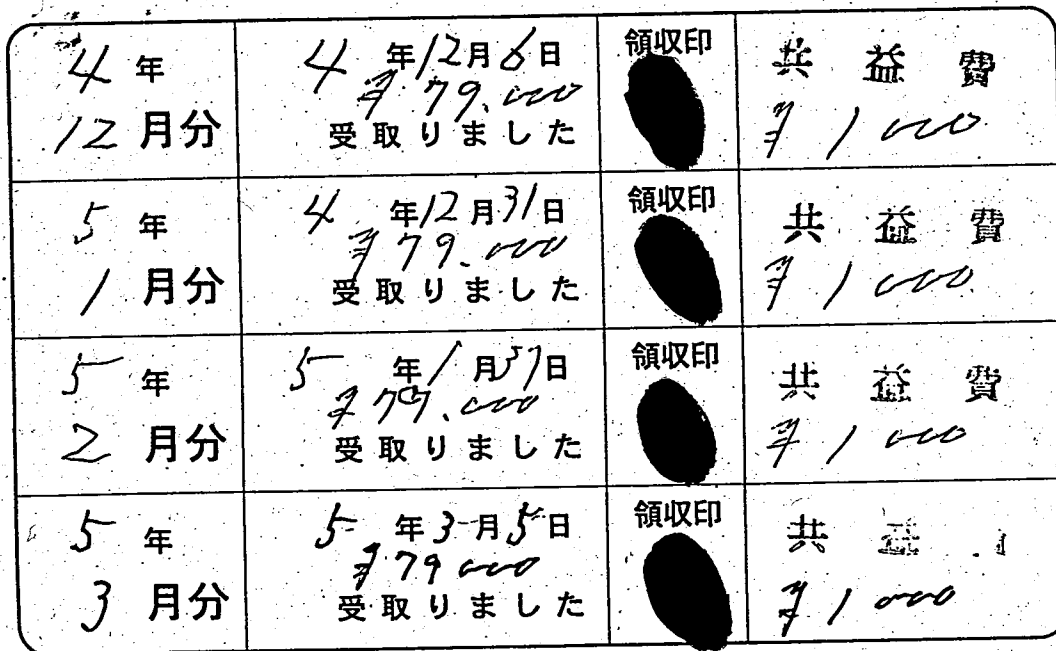 4年
12月分
4年12月6日
¥79.000
受取りました
領収印
共益費
¥1000
5年
1月分
4年12月31日
¥79.000
受取りました
領収印
共益費
¥1000
5年
2月分
5年1月31日
¥79.000
受取りました
領収印
共益費
¥1000
5年
3月分
5年3月5日
¥79000
受取りました
領収印
共益
¥1000